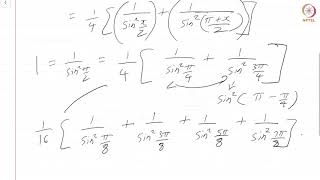 = 1/4 [ (1/sin² x/2) + (1/sin² (π+x/2)) ]
1 = 1/sin² π/2 = 1/4 [ 1/sin² π/4 + 1/sin² 3π/4 ]
sin² (π - π/4)
1/16 [ 1/sin² π/8 + 1/sin² 3π/8 + 1/sin² 5π/8 + 1/sin² 7π/8 ].
NPTEL